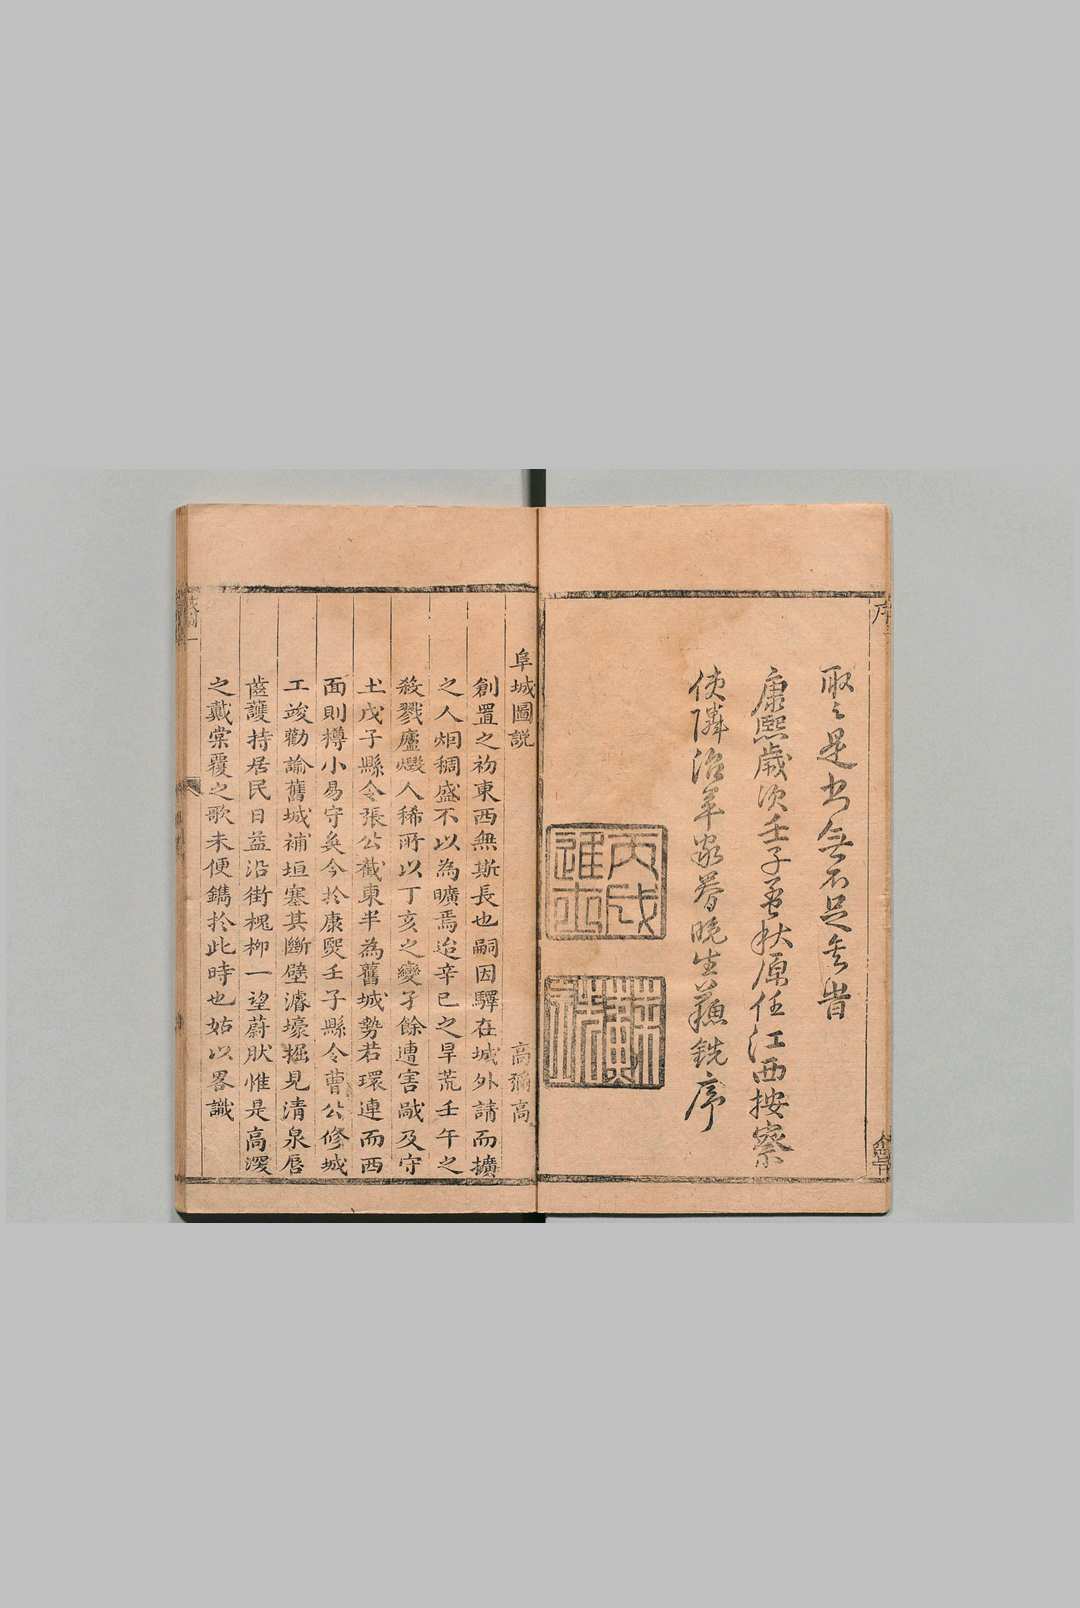 序
聚之是書無不足矣昔
康熙歲次壬子孟秋原任江西按察
使隣治年家眷晚生蘇銑序
丙戌
進士
阜城圖説
高彌高
創置之初東西無斯長也嗣因驛在城外請而擴
之人烟稠盛不以為曠焉迨辛巳之旱荒壬午之
殺戮廬燬人稀所以丁亥之變孑餘遭害敵及守
土戊子縣令張公截東半為舊城勢若環連而西
面則樽小易守矣今於康熙壬子縣令曹公修城
工竣勸諭舊城補垣塞其斷壁濬壕掘見清泉唇
齒護持居民日益沿街槐柳一望蔚肰惟是高深
之戴棠覆之歌未便鐫於此時也姑以畧識